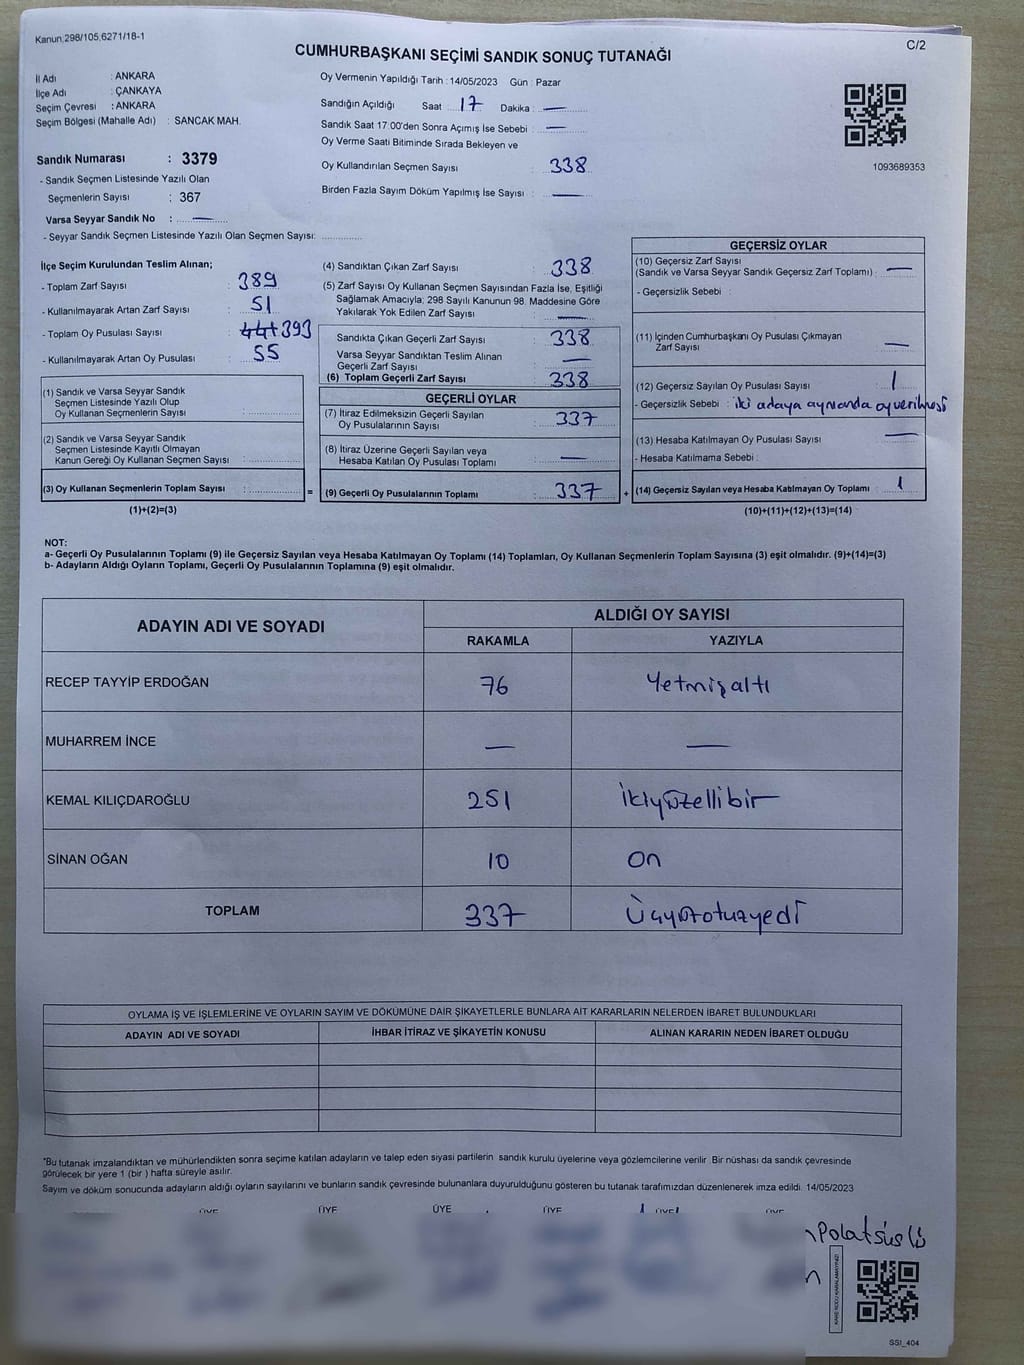 Kanun;298/105,6271/18-1
C/2
CUMHURBAŞKANI SEÇİMİ SANDIK SONUÇ TUTANAĞI
İl Adı : ANKARA
İlçe Adı : ÇANKAYA
Seçim Çevresi : ANKARA
Seçim Bölgesi (Mahalle Adı) : SANCAK MAH.
Sandık Numarası : 3379
- Sandık Seçmen Listesinde Yazılı Olan
Seçmenlerin Sayısı : 367
Varsa Seyyar Sandık No : —
- Seyyar Sandık Seçmen Listesinde Yazılı Olan Seçmen Sayısı:
Oy Vermenin Yapıldığı Tarih : 14/05/2023 Gün : Pazar
Sandığın Açıldığı Saat 17 Dakika : —
Sandık Saat 17:00'den Sonra Açımış İse Sebebi : —
Oy Verme Saati Bitiminde Sırada Bekleyen ve
Oy Kullandırılan Seçmen Sayısı : 338
Birden Fazla Sayım Döküm Yapılmış İse Sayısı : —
1093689353
İlçe Seçim Kurulundan Teslim Alınan;
- Toplam Zarf Sayısı : 389
- Kullanılmayarak Artan Zarf Sayısı : 51
- Toplam Oy Pusulası Sayısı : 441 393
- Kullanılmayarak Artan Oy Pusulası : 55
(1) Sandık ve Varsa Seyyar Sandık
Seçmen Listesinde Yazılı Olup
Oy Kullanan Seçmenlerin Sayısı :
(2) Sandık ve Varsa Seyyar Sandık
Seçmen Listesinde Kayıtlı Olmayan
Kanun Gereği Oy Kullanan Seçmen Sayısı :
(3) Oy Kullanan Seçmenlerin Toplam Sayısı : =
(1)+(2)=(3)
(4) Sandıktan Çıkan Zarf Sayısı : 338
(5) Zarf Sayısı Oy Kullanan Seçmen Sayısından Fazla İse, Eşitliği
Sağlamak Amacıyla; 298 Sayılı Kanunun 98. Maddesine Göre
Yakılarak Yok Edilen Zarf Sayısı : —
Sandıkta Çıkan Geçerli Zarf Sayısı : 338
Varsa Seyyar Sandıktan Teslim Alınan
Geçerli Zarf Sayısı : —
(6) Toplam Geçerli Zarf Sayısı : 338
GEÇERLİ OYLAR
(7) İtiraz Edilmeksizin Geçerli Sayılan
Oy Pusulalarının Sayısı : 337
(8) İtiraz Üzerine Geçerli Sayılan veya
Hesaba Katılan Oy Pusulası Toplamı : —
(9) Geçerli Oy Pusulalarının Toplamı : 337 +
GEÇERSİZ OYLAR
(10) Geçersiz Zarf Sayısı
(Sandık ve Varsa Seyyar Sandık Geçersiz Zarf Toplamı) : —
- Geçersizlik Sebebi :
(11) İçinden Cumhurbaşkanı Oy Pusulası Çıkmayan
Zarf Sayısı : —
(12) Geçersiz Sayılan Oy Pusulası Sayısı : 1
- Geçersizlik Sebebi : iki adaya aynı anda oy verilmesi
(13) Hesaba Katılmayan Oy Pusulası Sayısı : —
- Hesaba Katılmama Sebebi :
(14) Geçersiz Sayılan veya Hesaba Katılmayan Oy Toplamı : 1
(10)+(11)+(12)+(13)=(14)
NOT:
a- Geçerli Oy Pusulalarının Toplamı (9) ile Geçersiz Sayılan veya Hesaba Katılmayan Oy Toplamı (14) Toplamları, Oy Kullanan Seçmenlerin Toplam Sayısına (3) eşit olmalıdır. (9)+(14)=(3)
b- Adayların Aldığı Oyların Toplamı, Geçerli Oy Pusulalarının Toplamına (9) eşit olmalıdır.
ADAYIN ADI VE SOYADI ALDIĞI OY SAYISI
RAKAMLA YAZIYLA
RECEP TAYYİP ERDOĞAN 76 Yetmişaltı
MUHARREM İNCE — —
KEMAL KILIÇDAROĞLU 251 ikiyüzellibir
SİNAN OĞAN 10 on
TOPLAM 337 Üçyüzotuzyedi
OYLAMA İŞ VE İŞLEMLERİNE VE OYLARIN SAYIM VE DÖKÜMÜNE DAİR ŞİKAYETLERLE BUNLARA AİT KARARLARIN NELERDEN İBARET BULUNDUKLARI
ADAYIN ADI VE SOYADI İHBAR İTİRAZ VE ŞİKAYETİN KONUSU ALINAN KARARIN NEDEN İBARET OLDUĞU
*Bu tutanak imzalandıktan ve mühürlendikten sonra seçime katılan adayların ve talep eden siyasi partilerin sandık kurulu üyelerine veya gözlemcilerine verilir. Bir nüshası da sandık çevresinde
görülecek bir yere 1 (bir) hafta süreyle asılır.
Sayım ve döküm sonucunda adayların aldığı oyların sayılarını ve bunların sandık çevresinde bulunanlara duyurulduğunu gösteren bu tutanak tarafımızdan düzenlenerek imza edildi. 14/05/2023
ÜYE ÜYE ÜYE ÜYE ÜYE ÜYE
SSI_404